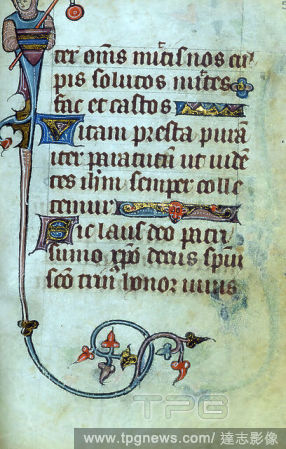 ter om̄s mitis nos cul
pis solutos mites
fac et castos
Vitam presta purā
iter para tutū ut uidē
tes ihm semper colle
temur
Sit laus deo patri
sumo xp̄o decus sp̄ui
sc̄o trin honor unus
TPG
www.tpgnews.com/ 達志影像